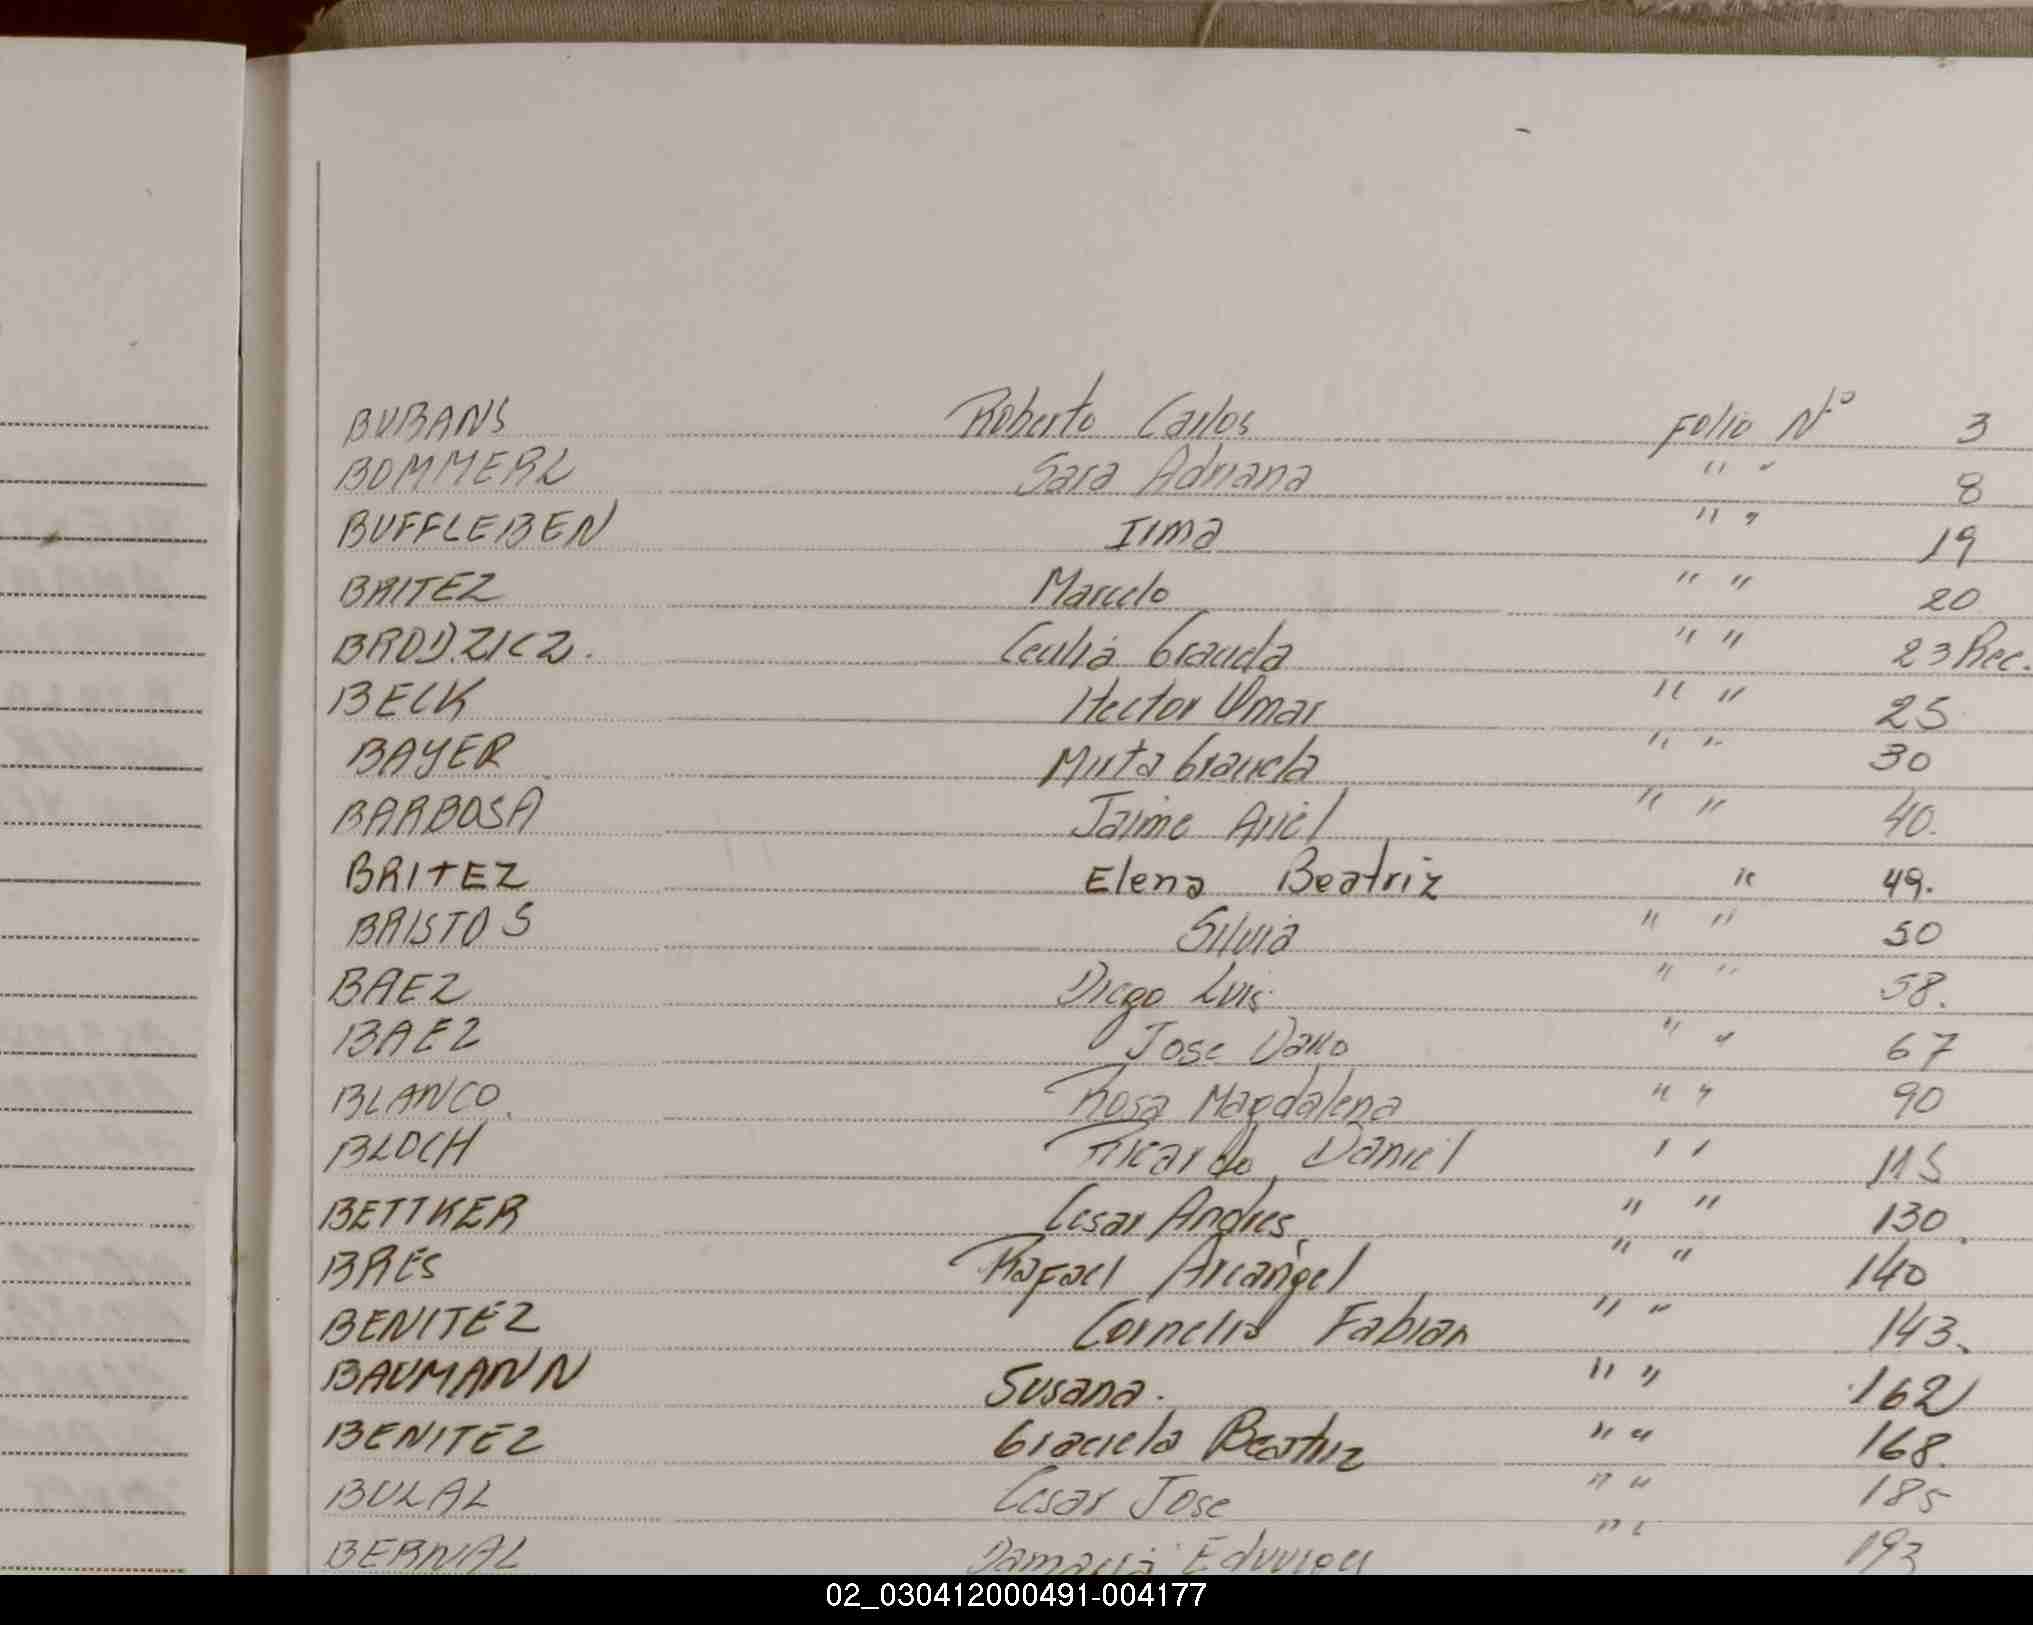 BUBANS Roberto Carlos Folio Nº 3
BOMMERL Sara Adriana " " 8
BUFFLEBEN Irma " " 19
BRITEZ Marcelo " " 20
BRODZICZ. Cecilia Graciela " " 23 Rec.
BECK Hector Omar " " 25
BAYER Mirta Graciela " " 30
BARBOSA Jaime Ariel " " 40.
BRITEZ Elena Beatriz " 49.
BRISTOS Silvia " " 50
BAEZ Diego Luis " " 58.
BAEZ Jose Dario " " 67
BLANCO. Rosa Magdalena " " 90
BLOCH Ricardo Daniel " " 115
BETTKER Cesar Andres " " 130
BRES Rafael Arcángel " " 140
BENITEZ Cornelio Fabian " " 143.
BAUMANN Susana. " " 162
BENITEZ Graciela Beatriz " " 168.
BULAL Cesar Jose " " 185
BERNAL " " 193
02_030412000491-004177